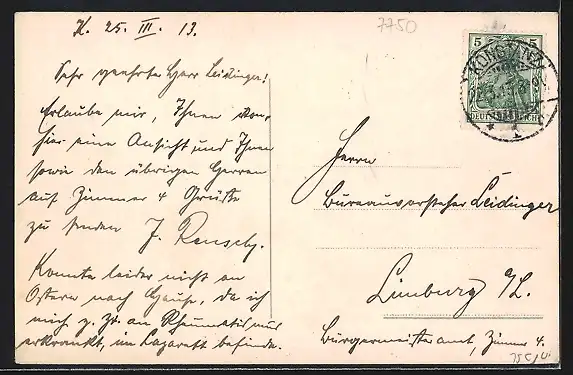 K. 25. III. 13.
7750
Sehr geehrter Herr Leidinger!
Erlaube mir, Ihnen von
hier eine Ansicht, und Ihnen
sowie den übrigen Herren
auf Zimmer 4 Grüße
zu senden J.
Konnte leider nicht an
Ostern nach Hause, da ich
mich z. Zt. an Rheumatismus
erkrankt, im Lazarett befinde.
5 5
KONSTANZ
DEUTSCHES REICH
* 1
Herrn
Bureauvorsteher Leidinger
Limburg a/L.
Bürgermeisteramt, Zimmer 4.